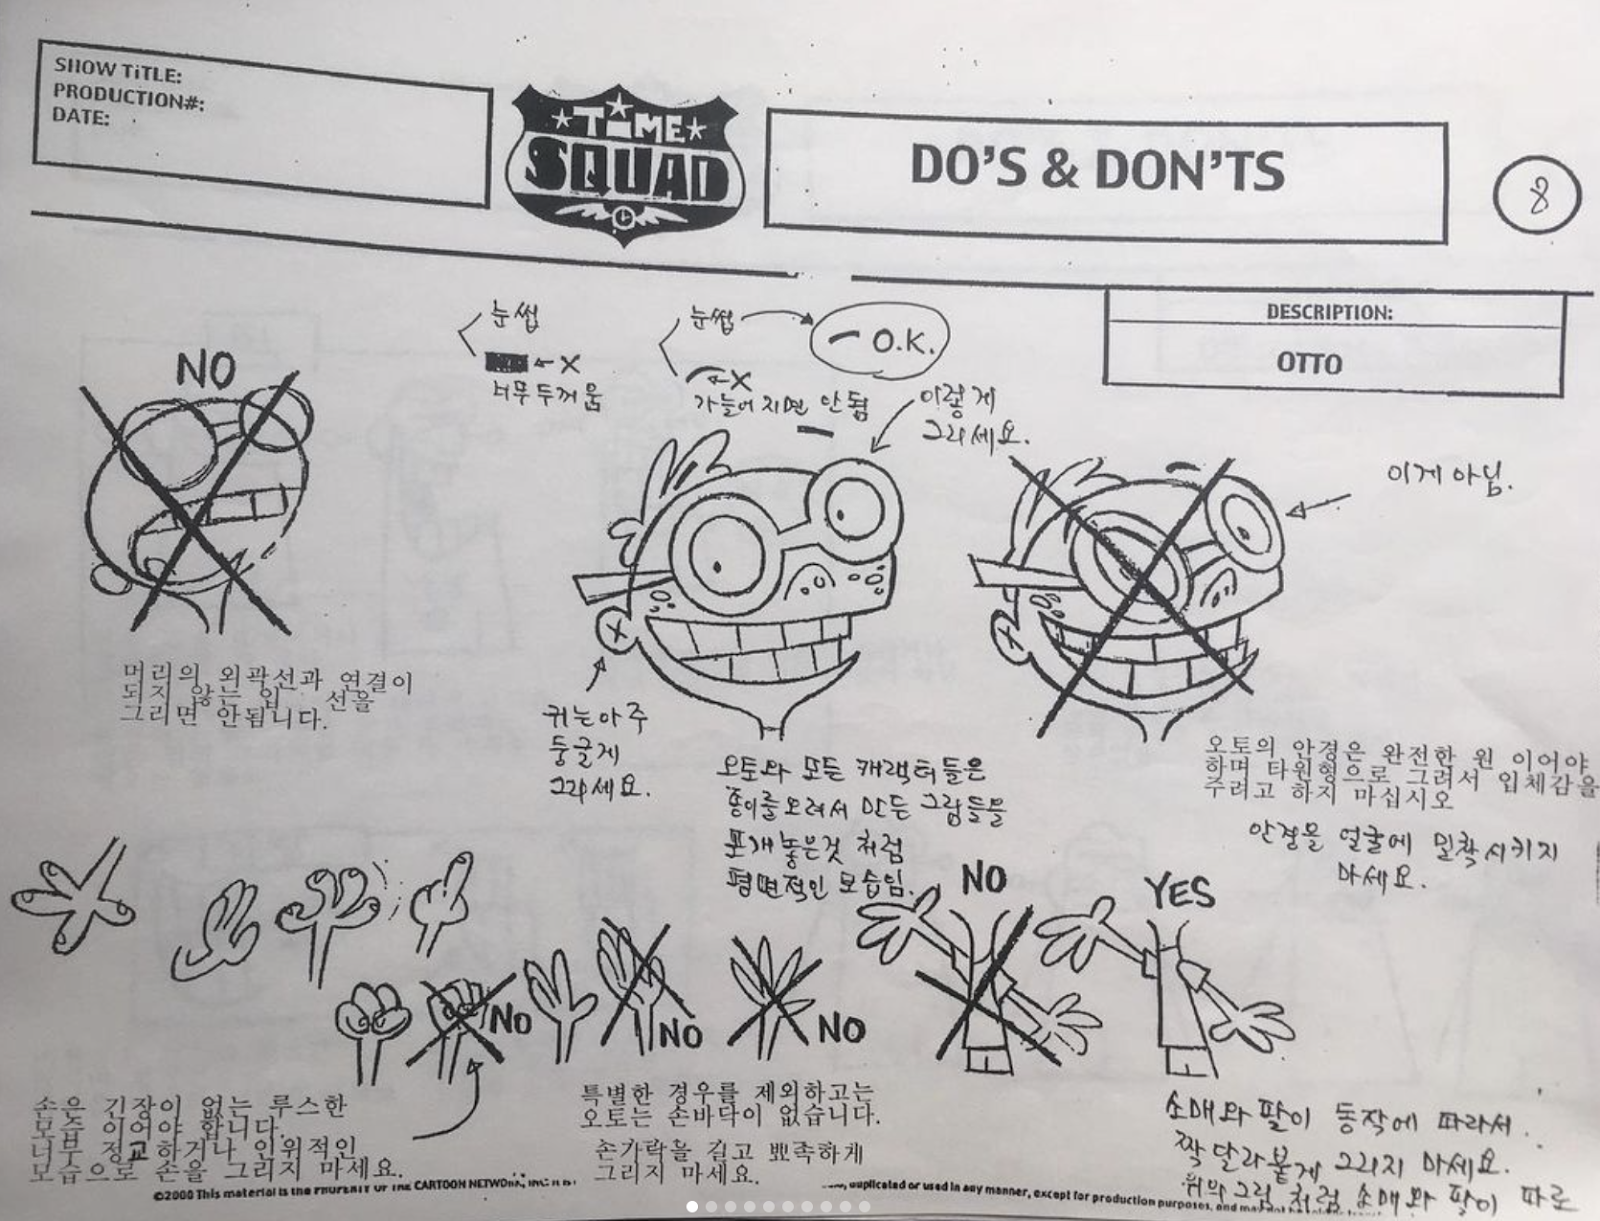 SHOW TiTLE:
PRODUCTION#:
DATE:
TIME
SQUAD
DO'S & DON'TS
8
DESCRIPTION:
OTTO
NO
눈썹
X
너무 두꺼움
눈썹
O.K.
X
가늘어지면 안됨
이렇게
그리세요.
이게 아님.
머리의 외곽선과 연결이
되지 않는 입 선을
그리면 안됩니다.
귀는 아주
둥글게
그리세요.
오토와 모든 캐랙터들은
종이를 오려서 만든 그림들을
포개 놓은것 처럼
평면적인 모습임.
오토의 안경은 완전한 원 이어야
하며 타원형으로 그려서 입체감을
주려고 하지 마십시오
안경을 얼굴에 밀착시키지
마세요.
NO
YES
NO
NO
NO
손은 긴장이 없는 루스한
모습 이어야 합니다.
너무 정교하거나 인위적인
모습으로 손을 그리지 마세요.
특별한 경우를 제외하고는
오토는 손바닥이 없습니다.
손가락을 길고 뾰족하게
그리지 마세요.
소매와 팔이 동작에 따라서
짝 달라붙게 그리지 마세요.
위의 그림 처럼 소매와 팔이 따로
©2000 This material is the PROPERTY OF THE CARTOON NETWORK, INC
duplicated or used in any manner, except for production purposes, and may not be